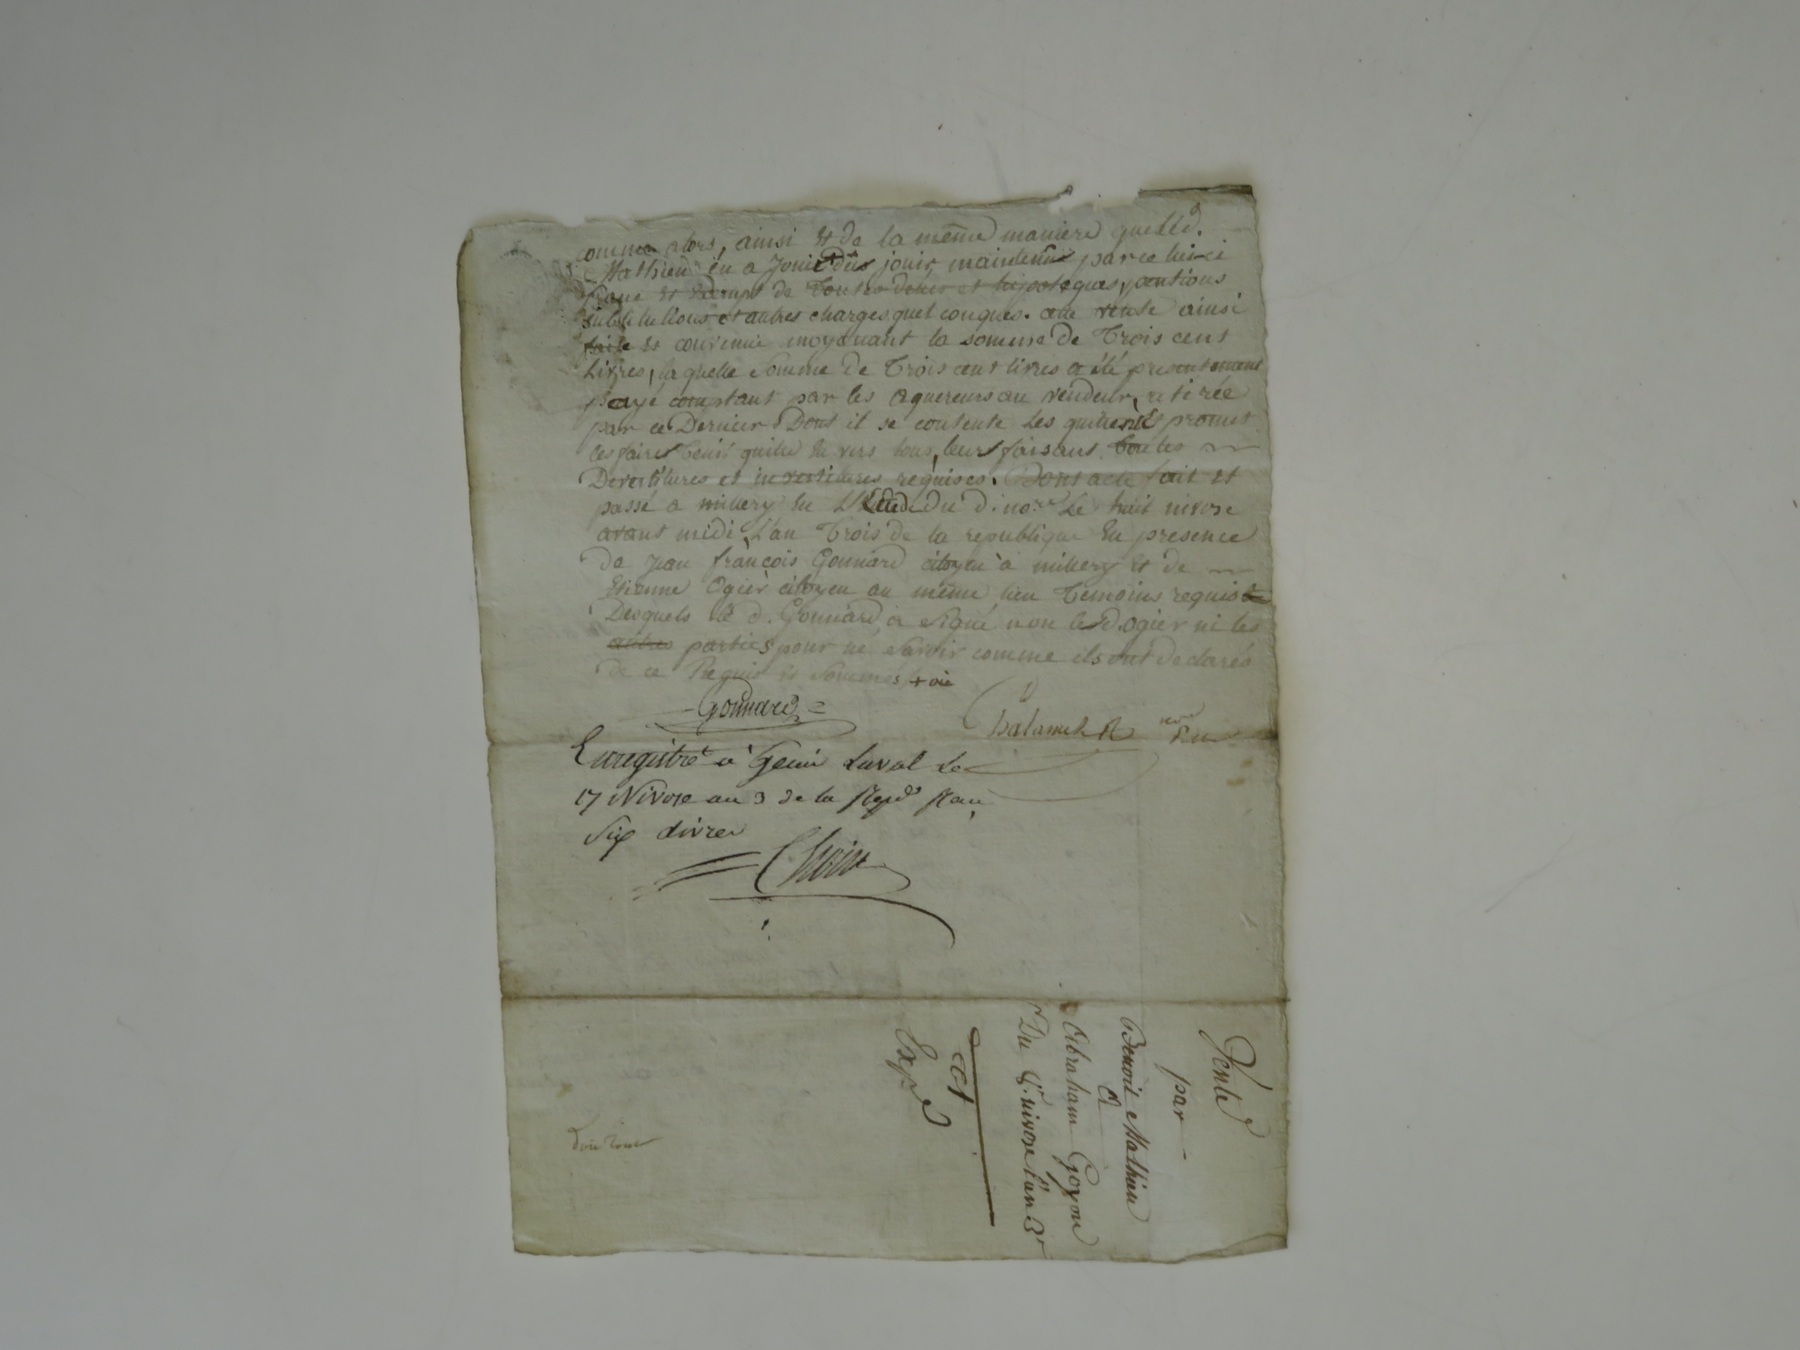 comme alors, ainsi et de la même maniere que led.
Mathieu en a Joui et dus jouir, maintenue par ce lui ci
franc et exempt de toutes dettes et hipoteques, pentions
substitutions et autres charges quel conques. cette vente ainsi
faite et convenue moyenant la somme de Trois cent
Livres, la quelle somme de Trois cent livres a été presentement
payé comptant par les aquereurs au vendeur, retirée
par ce Dernier Dont il se contente les quitte et promet
les faire tenir quitte en vers tous, leurs faisant toutes
Devestitures et investitures requises. Dont acte fait et
passé a millery en L'Etude du d. nore. Le huit nivose
avant midi, L'an Trois de la republique En presence
De Jean françois Gonnard citoyen a millery et de
Etienne Ogier citoyen au même lieu Temoins requis
Desquels le d. Gonnard a signé non le d. ogier ni les
autres parties pour ne savoir comme ils ont declarés
de ce Requis et Sommés
Gonnard
Enregistré a Genis Laval Le
17 Nivose an 3 de la Repd. Recu
Six Livres
Vente
par
Benoit Mathieu
a
Abraham Goyon
Du 8e. nivose l'an 3e
ct
Expd